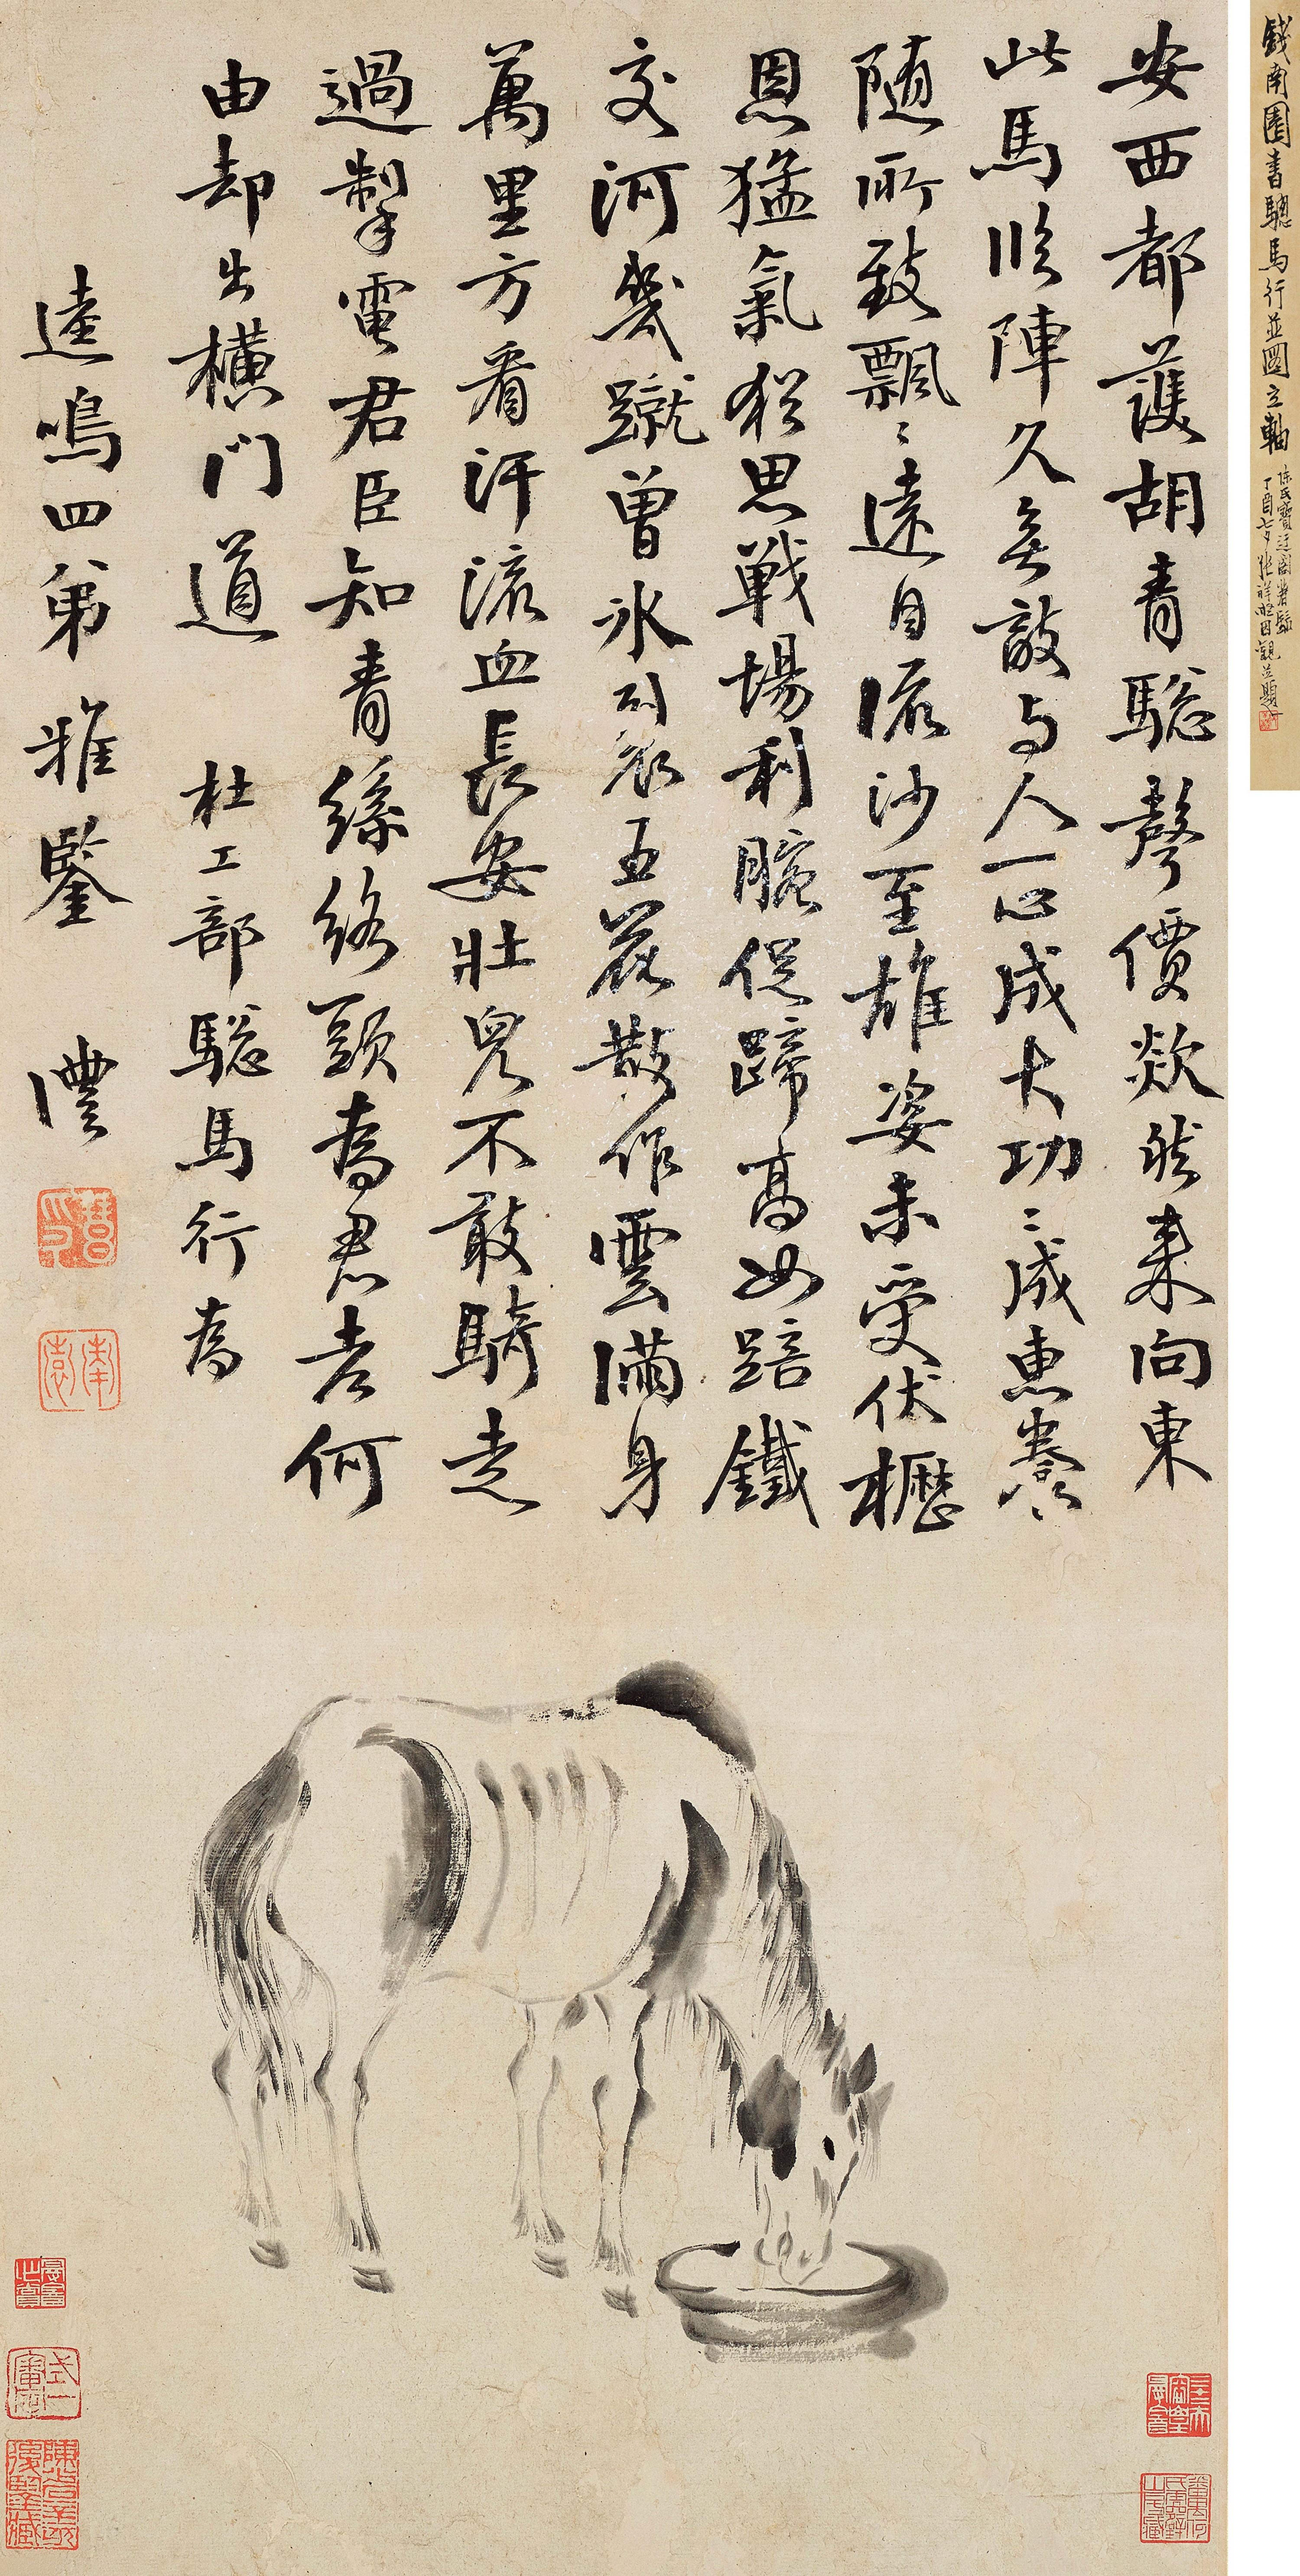 錢南園書驄馬行並圖立軸
陳氏寶迂閣舊藏
丁酉七夕張祥凝因觀並題
安西都護胡青驄聲價欻然来向東
此馬臨陣久無敵与人一心成大功〻成惠養
随所致飄〻遠自流沙至雄姿未受伏櫪
恩猛氣猶思戰場利腕促蹄高如踣鐵
交河幾蹴曾冰裂五花散作雲滿身
萬里方看汗流血長安壯兒不敢騎走
過掣電君臣知青絲絡頭為君老何
由却出橫門道 杜工部驄馬行為
逵鳴四弟 雅鑒 灃
南園
式一審定